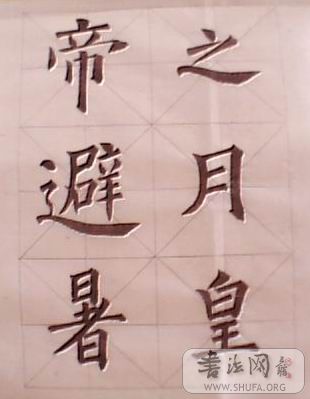 之月皇
帝避暑
书法网
WWW.SHUFA.ORG